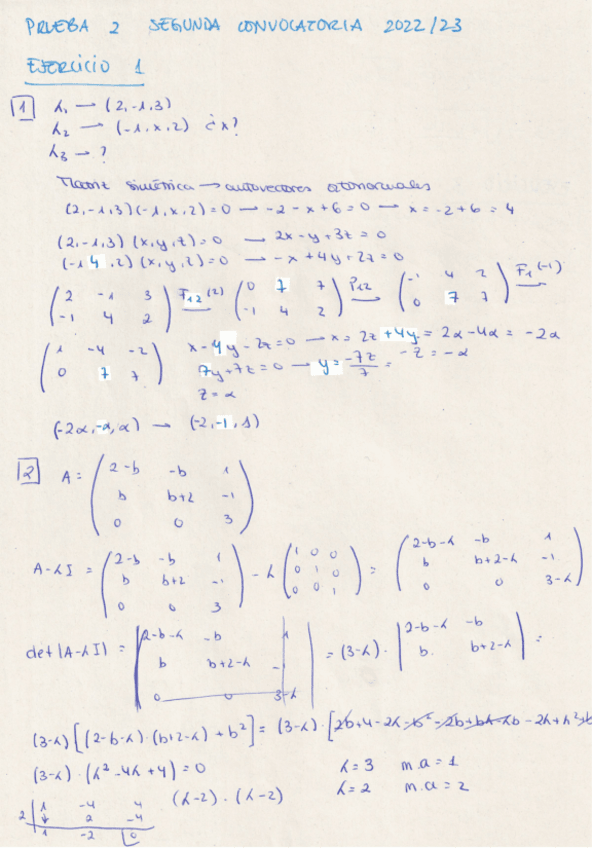 PRUEBA 2 SEGUNDA CONVOCATORIA 2022/23
EJERCICIO 1
1 λ₁ → (2,-1,3)
λ₂ → (-1,x,2) ¿x?
λ₃ → ?
Matriz simétrica → autovectores ortonormales
(2,-1,3)(-1,x,2)=0 → -2-x+6=0 → x=-2+6=4
(2,-1,3)(x,y,z)=0 → 2x-y+3z=0
(-1 4,2)(x,y,z)=0 → -x+4y+2z=0
(2 -1 3 / -1 4 2) F₁₂(2) → (0 7 7 / -1 4 2) P₁₂ → (-1 4 2 / 0 7 7) F₁(-1) →
(1 -4 -2 / 0 7 7) x-4y-2z=0 → x=2z+4y=2α-4α=-2α
7y+7z=0 → y=-7z/7=-z=-α
z=α
(-2α,-α,α) → (-2,-1,1)
2 A=(2-b -b 1 / b b+2 -1 / 0 0 3)
A-λI=(2-b -b 1 / b b+2 -1 / 0 0 3)-λ(1 0 0 / 0 1 0 / 0 0 1)=(2-b-λ -b 1 / b b+2-λ -1 / 0 0 3-λ)
det|A-λI|=|2-b-λ -b 1 / b b+2-λ -1 / 0 0 3-λ|=(3-λ)·|2-b-λ -b / b b+2-λ|=
(3-λ)[(2-b-λ)·(b+2-λ)+b²]=(3-λ)·[2b+4-2λ-b²-2b+bλ-λb-2λ+λ²+b
(3-λ)·(λ²-4λ+4)=0 λ=3 m.a=1
(λ-2)·(λ-2) λ=2 m.a=2
1 -4 4
2 ↓ 2 -4
1 -2 0